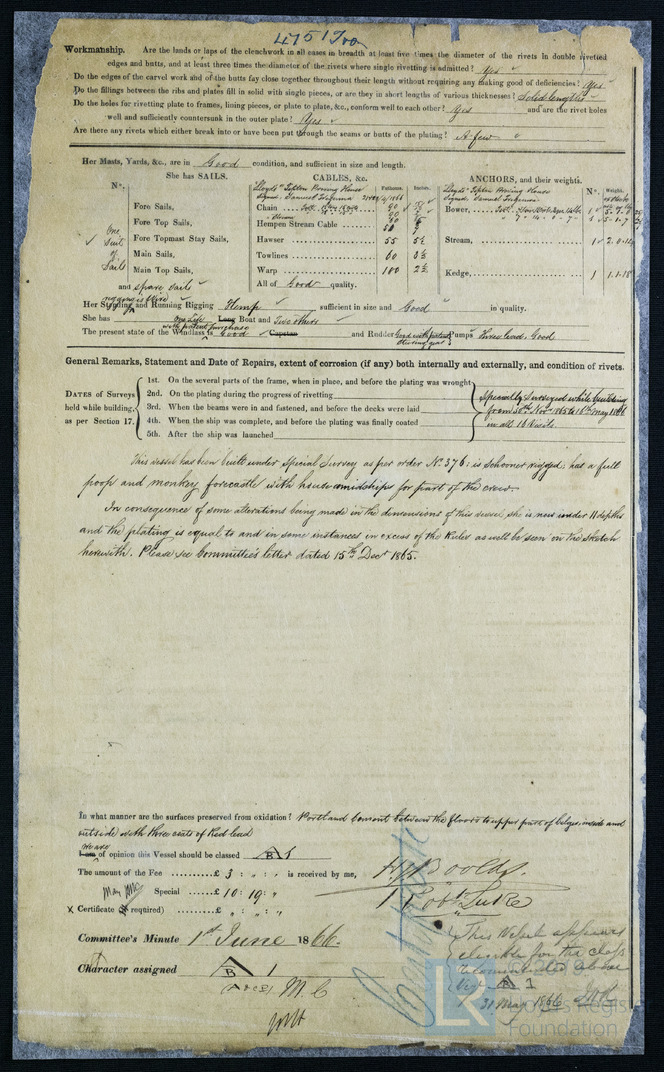 4751 Iron
Workmanship. Are the lands or laps of the clenchwork in all cases in breadth at least five times the diameter of the rivets in double rivetted
edges and butts, and at least three times the diameter of the rivets where single rivetting is admitted? Yes
Do the edges of the carvel work and of the butts fay close together throughout their length without requiring any making good of deficiencies? Yes
Do the fillings between the ribs and plates fill in solid with single pieces, or are they in short lengths of various thicknesses? Solid lengths
Do the holes for rivetting plate to frames, lining pieces, or plate to plate, &c., conform well to each other? Yes and are the rivet holes
well and sufficiently countersunk in the outer plate? Yes
Are there any rivets which either break into or have been put through the seams or butts of the plating? A few
Her Masts, Yards, &c., are in Good condition, and sufficient in size and length.
She has SAILS. CABLES, &c. ANCHORS, and their weights.
N°. Fathoms. Inches. N°. Weight.
Fore Sails, Chain Bower,
Fore Top Sails, Hempen Stream Cable
One Suit of Sails
Fore Topmast Stay Sails, Hawser 55 5½ Stream,
Main Sails, Towlines 60 3½
Main Top Sails, Warp 100 2½ Kedge, 1 1.1.18
and spare sails All of Good quality.
Her Standing and Running Rigging Hemp sufficient in size and Good in quality.
rigging is Wire
She has one Life Long Boat and Two others
with patent purchase
The present state of the Windlass is Good Capstan and Rudder Good with patent steering gear Pumps Three lead, Good
General Remarks, Statement and Date of Repairs, extent of corrosion (if any) both internally and externally, and condition of rivets.
DATES of Surveys held while building, as per Section 17.
1st. On the several parts of the frame, when in place, and before the plating was wrought
2nd. On the plating during the progress of rivetting
3rd. When the beams were in and fastened, and before the decks were laid
4th. When the ship was complete, and before the plating was finally coated
5th. After the ship was launched
Specially Surveyed while building
from 30th Nov. 1865 to 16th May 1866
in all 16 Visits.
This vessel has been built under Special Survey as per order N° 376: is schooner rigged; has a full
poop and monkey forecastle with house amidships for part of the crew.
In consequence of some alterations being made in the dimensions of this vessel she is now under 11 depths
and the plating is equal to and in some instances in excess of the Rules as will be seen on the sketch
herewith. Please see Committee's letter dated 15th Decr 1865.
In what manner are the surfaces preserved from oxidation? Portland Cement between the floors to upper part of bilges, inside and
outside with three coats of Red lead
We are
I am of opinion this Vessel should be classed A B 1
The amount of the Fee £ 3 : is received by me,
Special £ 10 : 19 : "
Certificate (if required) £ " : " : "
Robt Luke
Committee's Minute 1st June 1866.
Character assigned A B 1
This Vessel appears
eligible for the class
recommended above
Viz A B 1
31 May 1866
M.C
LR
Lloyd's Register
Foundation